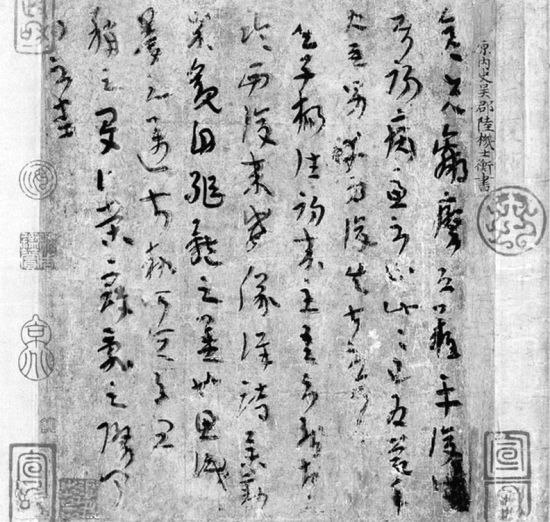 晉內史吳郡陸機士衡書
彦先羸瘵恐難平復往屬
初病慮不止此此已為慶承
使唯男幸為復失前憂耳
吳子楊往初來主吾不能盡
臨西復來威儀詳跱舉動
成觀自軀體之美也思識
量之邁前勢所恒有宜
稱之夏伯榮寇亂之際聞
問不悉